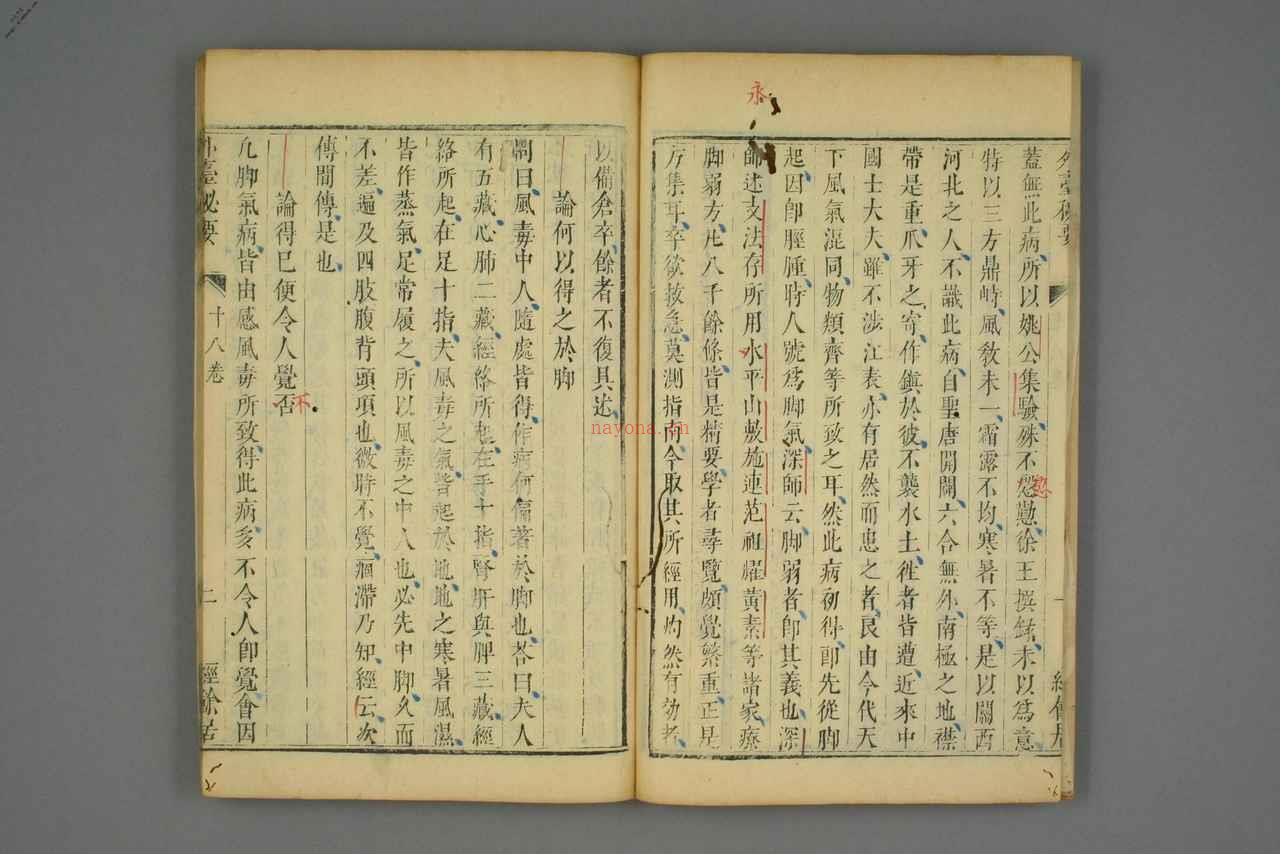 永
外臺秘要
一
蓋無此病所以姚公集驗殊不慇懃徐王撰錄未以爲意
慇
特以三方鼎峙風敎未一霜露不均寒暑不等是以關西
河北之人不識此病自聖唐開闢六合無外南極之地襟
帶是重爪牙之寄作鎭於彼不襲水土徃者皆遭近來中
國士大夫雖不涉江表亦有居然而患之者良由今代天
下風氣混同物類齊等所致之耳然此病初得卽先從脚
起因卽脛腫時人號爲脚氣深師云脚弱者卽其義也深
師述支法存所用水平山敷施連范祖耀黃素等諸家療
脚弱方凡八十餘條皆是精要學者尋覽頗覺繁重正是
方集耳卒欲救急莫測指南今取其所經用灼然有効者
以備倉卒餘者不復具述
論何以得之於脚
問曰風毒中人隨處皆得作病何偏著於脚也荅曰夫人
有五藏心肺二藏經絡所起在手十指腎肝與脾三藏經
絡所起在足十指夫風毒之氣皆起於地地之寒暑風濕
皆作蒸氣足常履之所以風毒之中人也必先中脚久而
不差遍及四肢腹背頭項也微時不覺痼滯乃知經云次
傳間傳是也
論得已便令人覺否
不
凡脚氣病皆由感風毒所致得此病多不令人卽覺會因
外臺秘要
十八卷
二
經餘居
nayona.cn